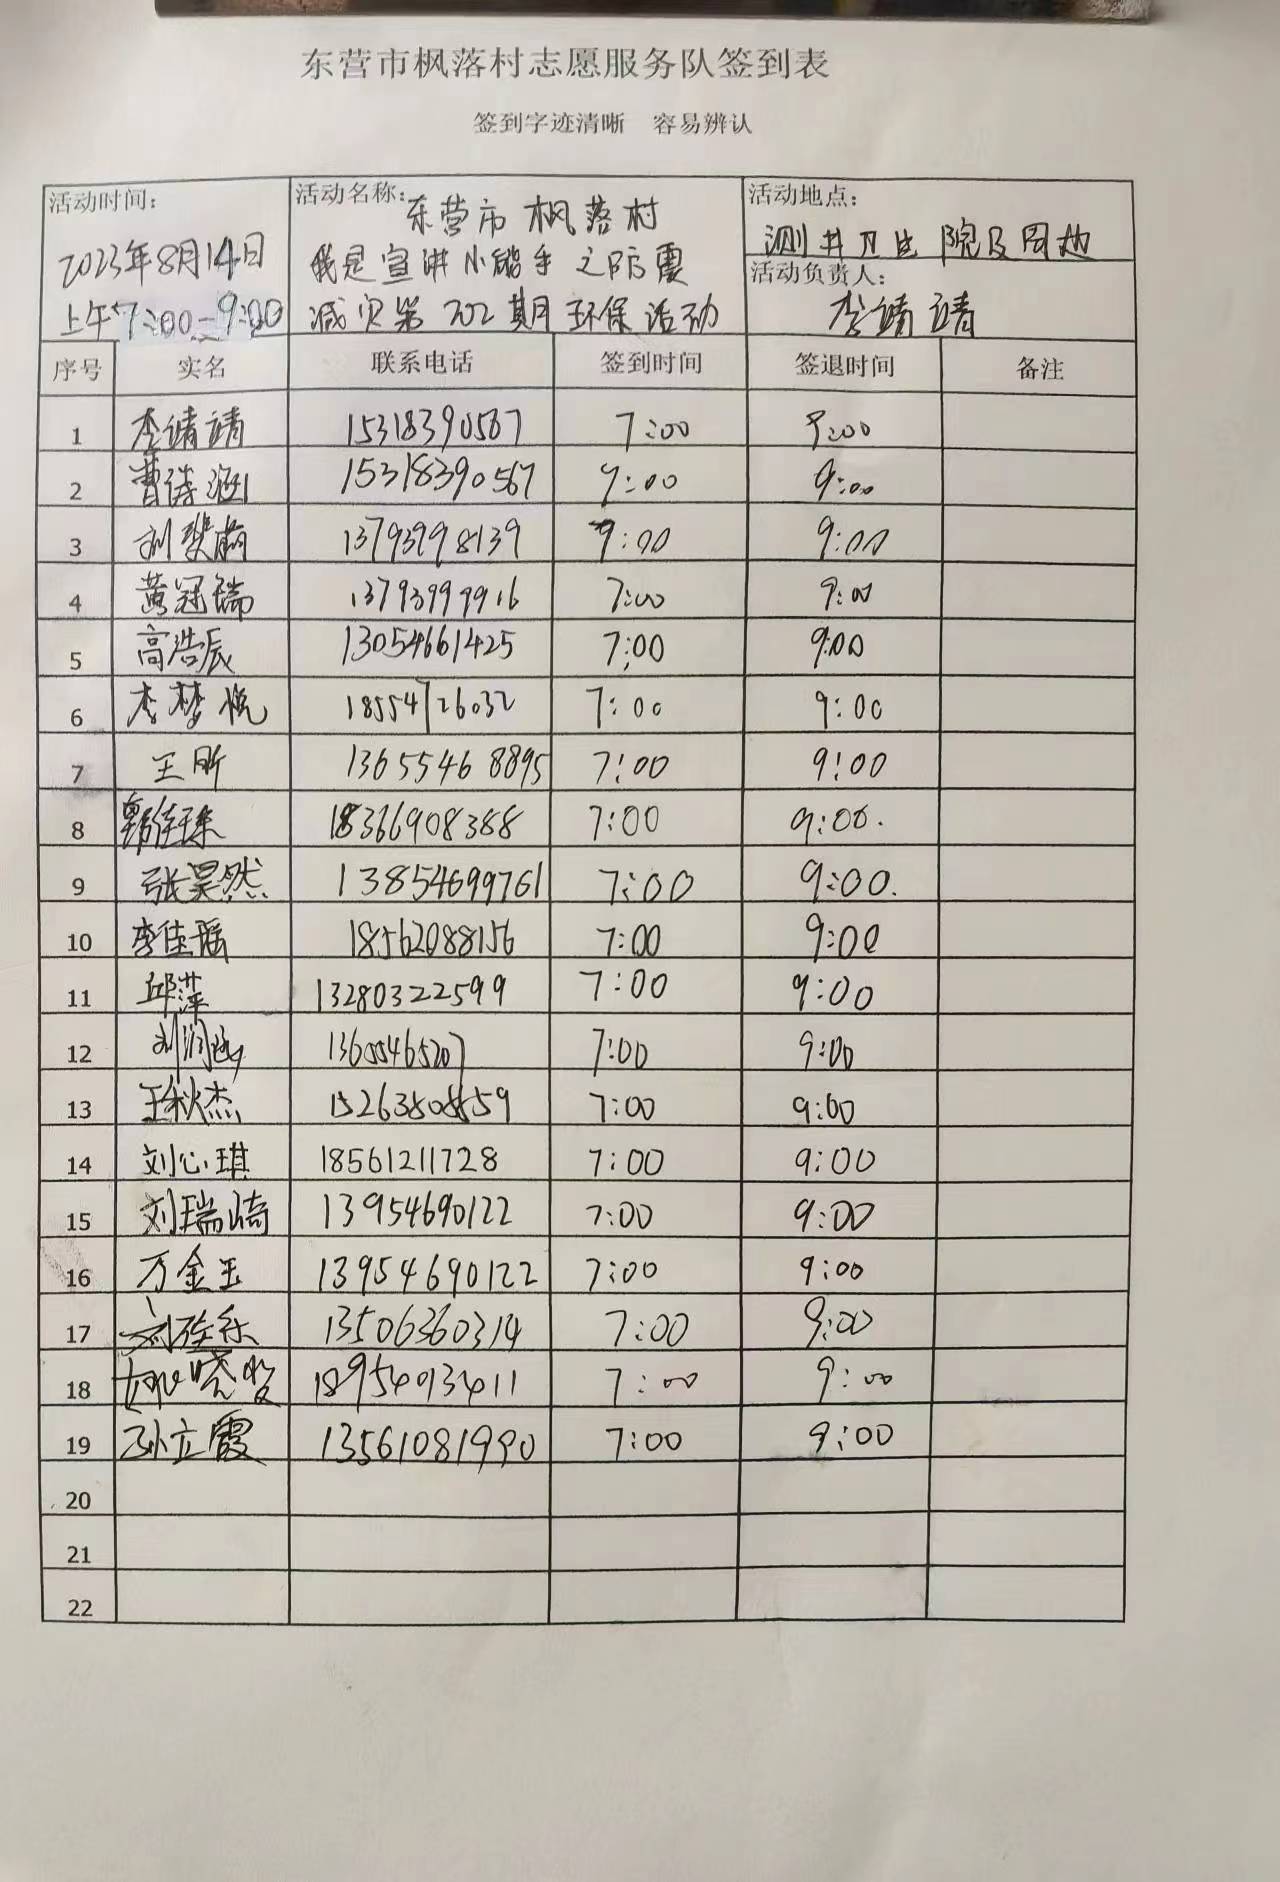 东营市枫落村志愿服务队签到表
签到字迹清晰 容易辨认
活动时间：
2023年8月14日
上午7:00-9:00
活动名称：东营市枫落村
我是宣讲小能手之防震
减灾第702期环保活动
活动地点：
测井卫生院及周边
活动负责人：
李靖靖
序号 实名 联系电话 签到时间 签退时间 备注
1 李靖靖 15318390567 7:00 9:00
2 曹诗涵 15318390567 9:00 9:00
3 刘 13793998139 9:00 9:00
4 黄冠瑞 13793999916 7:00 9:00
5 高浩辰 13054661425 7:00 9:00
6 李梦悦 18554726032 7:00 9:00
7 王昕 13655468895 7:00 9:00
8 18366908388 7:00 9:00.
9 张昊然 13854699761 7:00 9:00.
10 李佳瑶 18562088156 7:00 9:00
11 邱萍 13280322599 7:00 9:00
12 刘润涵 13605465207 7:00 9:00
13 王秋杰 15263808859 7:00 9:00
14 刘心琪 18561211728 7:00 9:00
15 刘瑞崎 13954690122 7:00 9:00
16 万金玉 13954690122 7:00 9:00
17 13506360314 7:00 9:00
18 18954013411 7:00 9:00
19 孙立霞 13561081990 7:00 9:00
20
21
22